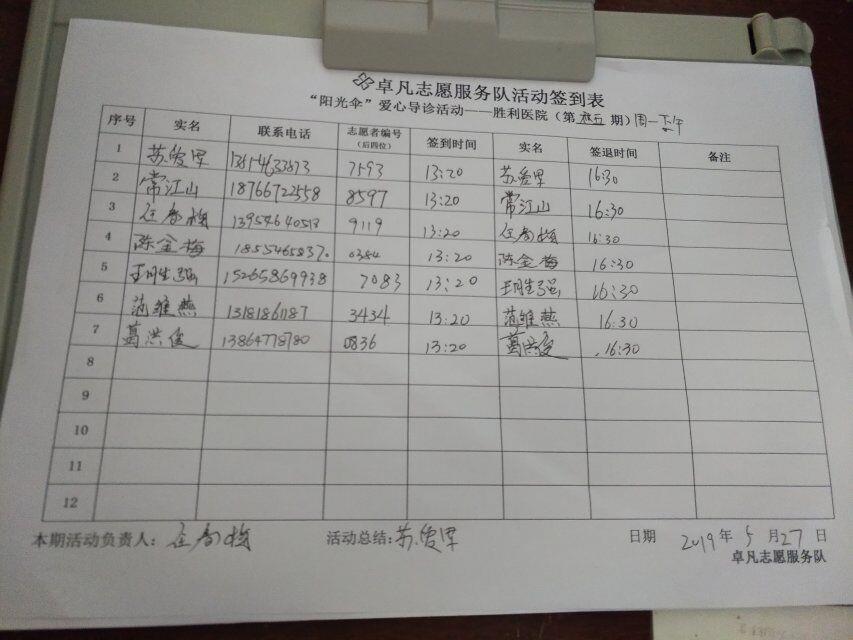 卓凡志愿服务队活动签到表
“阳光伞”爱心导诊活动——胜利医院（第 期）周一下午
序号 实名 联系电话 志愿者编号（后四位） 签到时间 实名 签退时间 备注
1 苏爱军 7593 13:20 苏爱军 16:30
2 常江山 18766722558 8597 13:20 常江山 16:30
3 任春梅 13954640513 9119 13:20 任春梅 16:30
4 陈金梅 1855465837. 0384 13:20 陈金梅 16:30
5 15265869938 7083 13:20 16:30
6 范维燕 13181861187 3434 13:20 范维燕 16:30
7 葛洪俊 13864778780 0836 13:20 葛洪俊 .16:30
8
9
10
11
12
本期活动负责人：任春梅 活动总结：苏爱军 日期 2019年5月27日
卓凡志愿服务队